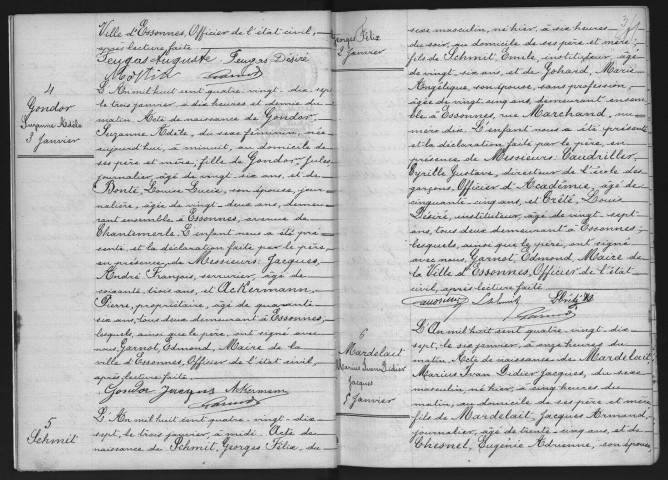 Ville d'Essonnes, Officier de l'état civil,
après lecture faite
Feugas Auguste Feugas Désiré
4
Gondor
Suzanne Adèle
3 Janvier
L'An mil huit cent quatre vingt-dix-sept
le trois janvier, à dix heures et demie du
matin. Acte de naissance de Gondor,
Suzanne Adèle, du sexe féminin, née
aujourd'hui, à minuit, au domicile de
ses père et mère, fille de Gondor Jules,
journalier, âgé de vingt-six ans, et de
Bonté, Louise Lucie, son épouse, jour-
nalière, âgée de vingt-deux ans, demeu-
rant ensemble à Essonnes, avenue de
Chantemerle. L'enfant nous a été pré-
senté et la déclaration faite par le père,
en présence de Messieurs: Jacques,
André François, serrurier, âgé de
soixante-trois ans, et Ackermann,
Pierre, propriétaire, âgé de quarante
six ans, tous deux demeurant à Essonnes,
lesquels, ainsi que le père, ont signé avec
nous Garnot, Edmond, Maire de la
ville d'Essonnes, Officier de l'état civil,
après lecture faite
Gondor Jacques Akermann
5
Schmit
L'An mil huit cent quatre-vingt-dix-
sept, le trois janvier, à midi. Acte de
naissance de Schmit, Georges Félix, du
Georges Félix
2 Janvier
sexe masculin, né hier, à six heures
du soir, au domicile de ses père et mère;
fils de Schmit, Emile, instituteur, âgé
de vingt-six ans, et de Gohard, Marie
Angélique, son épouse, sans profession,
âgée de vingt-cinq ans, demeurant ensem-
ble à Essonnes, rue Marchand, nu-
méro dix. L'enfant nous a été présenté
et la déclaration faite par le père, en
présence de Messieurs: Caudriller,
Cyrille Gustave, directeur de l'école des
garçons, Officier d'Académie, âgé de
cinquante-cinq ans, et Crété, Louis
Désiré, instituteur, âgé de vingt-sept-
ans, tous deux demeurant à Essonnes;
lesquels, ainsi que le père, ont signé
avec nous, Garnot, Edmond, Maire de
la Ville d'Essonnes, Officier de l'état
civil, après lecture faite
6
Mardelait
Marius Ivan Didier
Jacques
5 Janvier
L'An mil huit cent quatre vingt-dix-
sept, le six janvier, à onze heures du
matin. Acte de naissance de Mardelait,
Marius Ivan Didier Jacques, du sexe
masculin, né hier, à cinq heures du
matin, au domicile de ses père et mère
fils de Mardelait, Jacques Armand,
journalier, âgé de trente-cinq ans, et de
Chesnel, Eugénie Adrienne, son épouse,